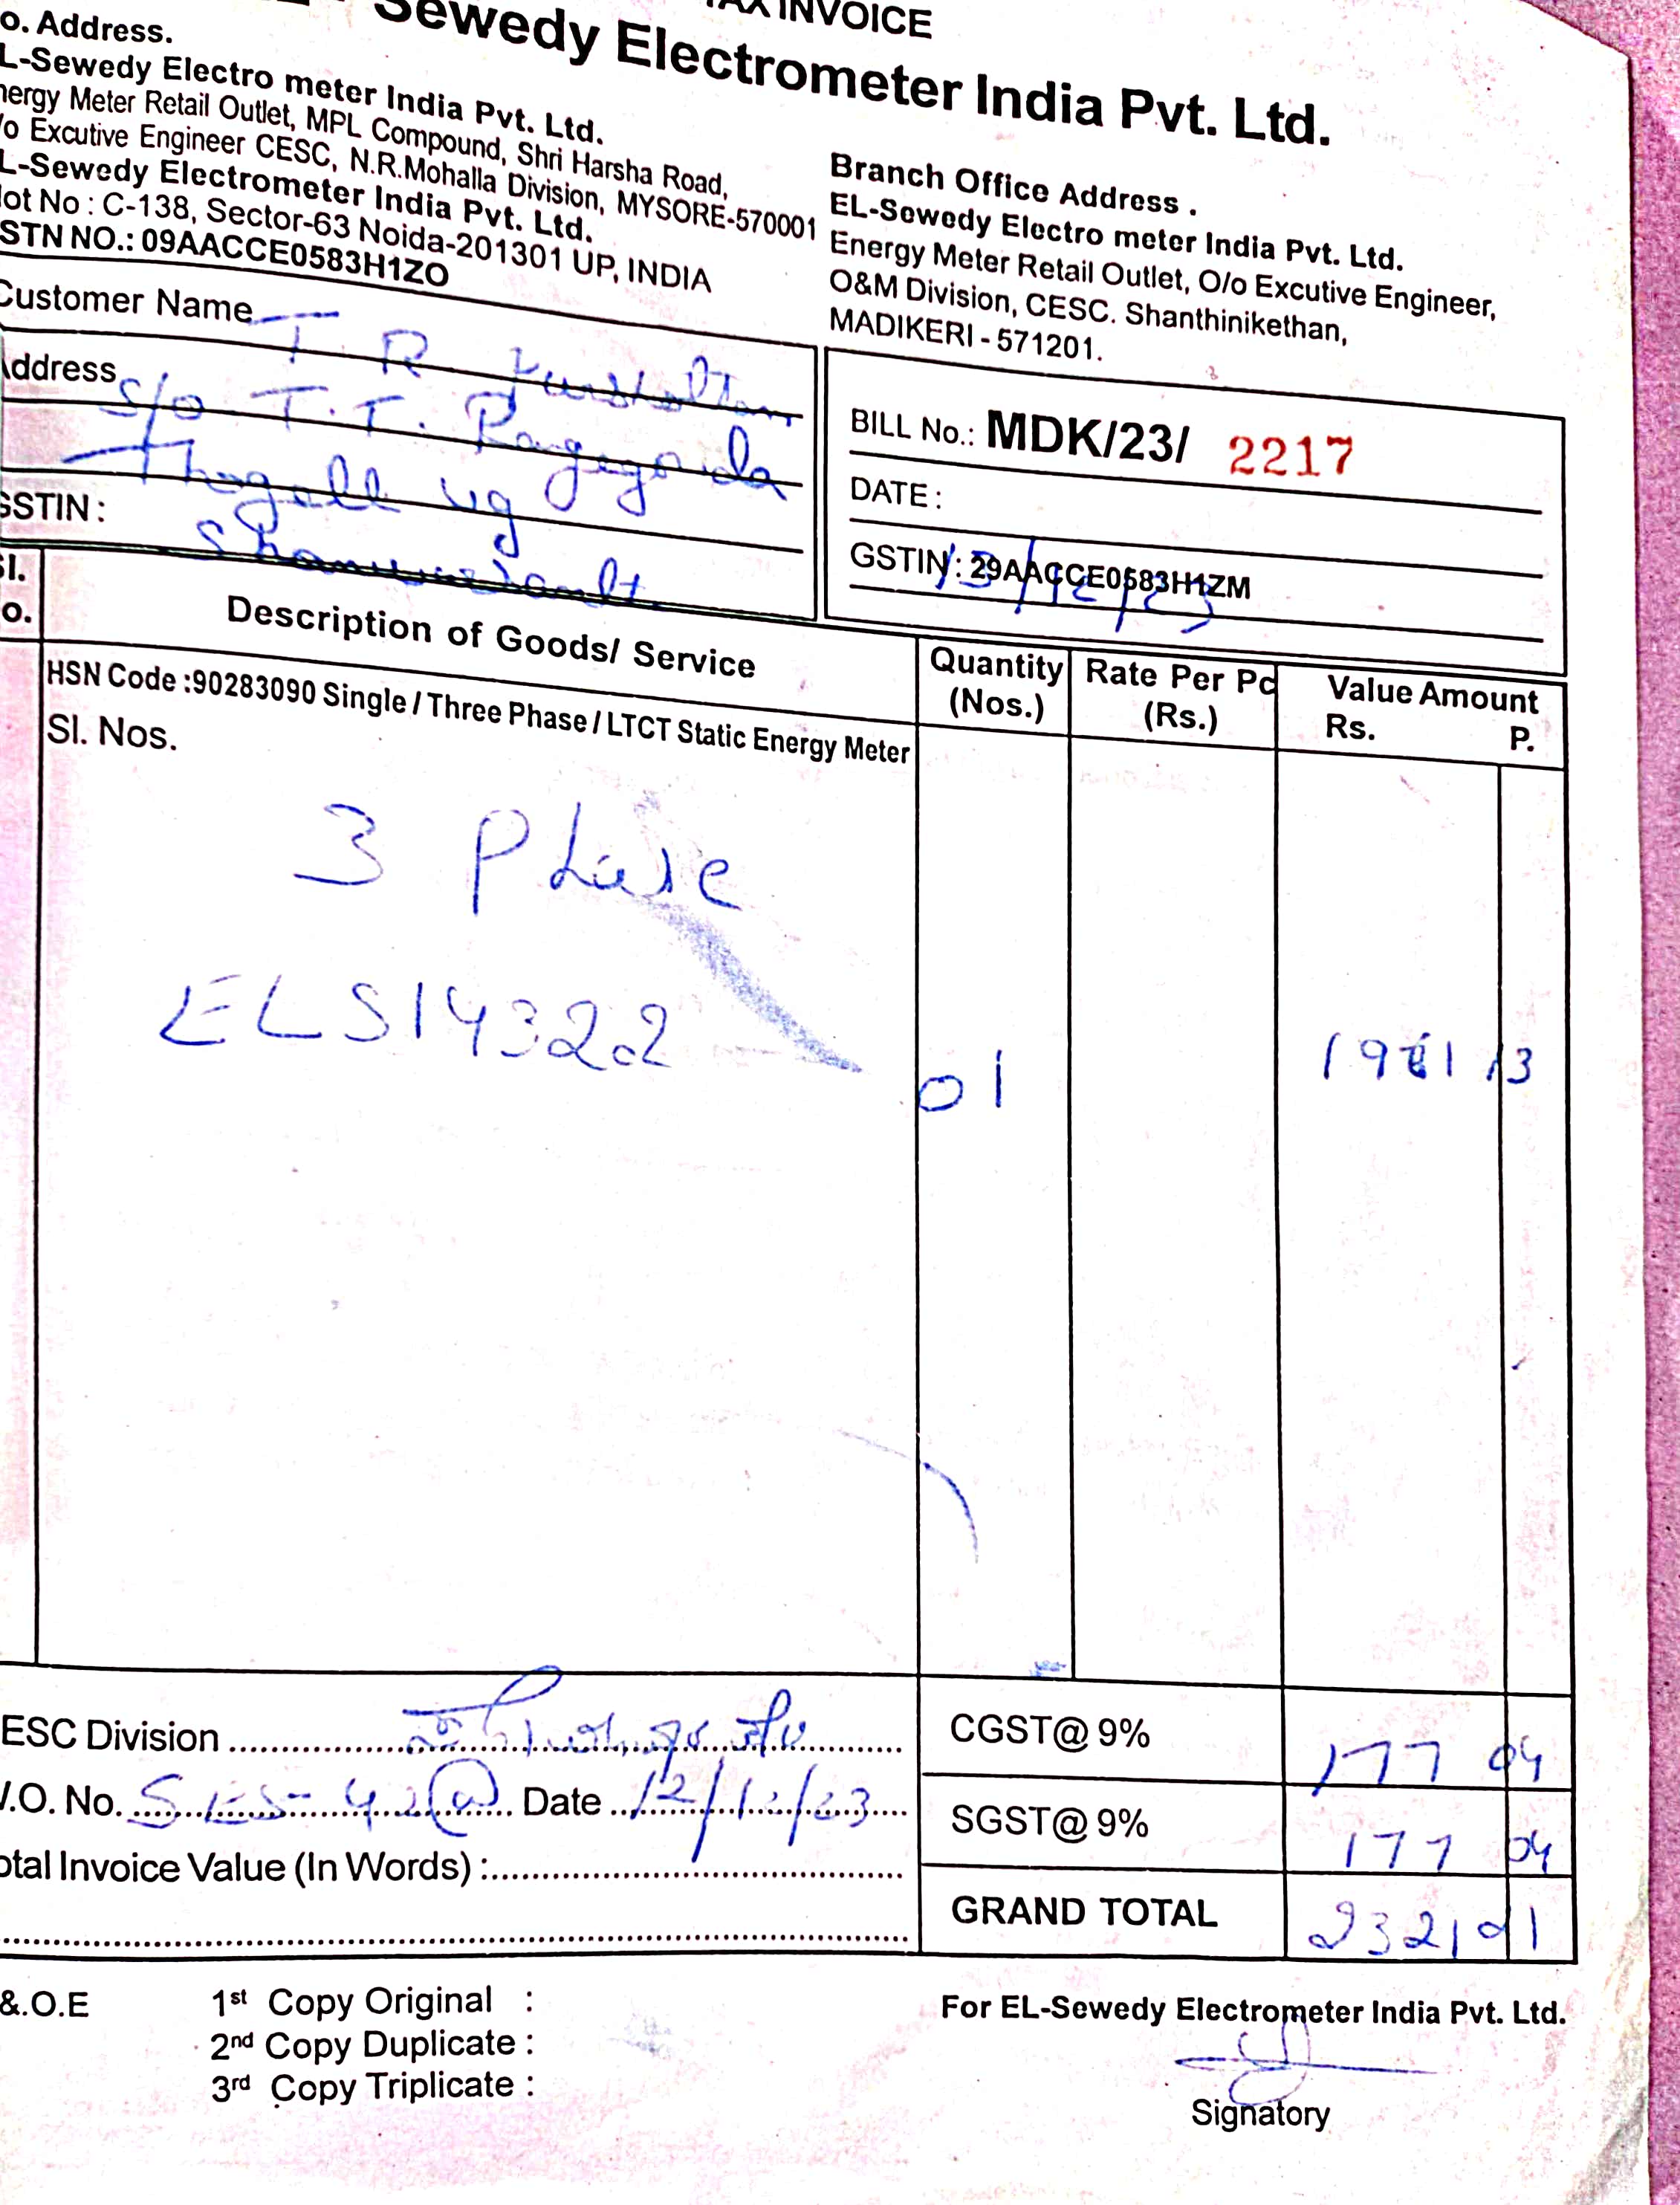 TAX INVOICE
Sewedy Electrometer India Pvt. Ltd.
o. Address.
L-Sewedy Electro meter India Pvt. Ltd.
nergy Meter Retail Outlet, MPL Compound, Shri Harsha Road,
/o Excutive Engineer CESC, N.R.Mohalla Division, MYSORE-570001
L-Sewedy Electrometer India Pvt. Ltd.
lot No : C-138, Sector-63 Noida-201301 UP, INDIA
STN NO.: 09AACCE0583H1ZO
Branch Office Address .
EL-Sewedy Electro meter India Pvt. Ltd.
Energy Meter Retail Outlet, O/o Excutive Engineer,
O&M Division, CESC. Shanthinikethan,
MADIKERI - 571201.
Customer Name T R
Address S/o T. T.
GSTIN :
BILL No.: MDK/23/ 2217
DATE : 13/12/23
GSTIN : 29AACCE0583H1ZM
Sl. No. Description of Goods/ Service Quantity (Nos.) Rate Per Pc (Rs.) Value Amount Rs. P.
HSN Code :90283090 Single / Three Phase / LTCT Static Energy Meter
Sl. Nos.
3 Phase
ELS14322 01 13
ESC Division
.O. No. Date 12/12/23
otal Invoice Value (In Words) :
CGST@ 9% 177 04
SGST@ 9% 177 04
GRAND TOTAL 2321 01
&.O.E
1st Copy Original :
2nd Copy Duplicate :
3rd Copy Triplicate :
For EL-Sewedy Electrometer India Pvt. Ltd.
Signatory